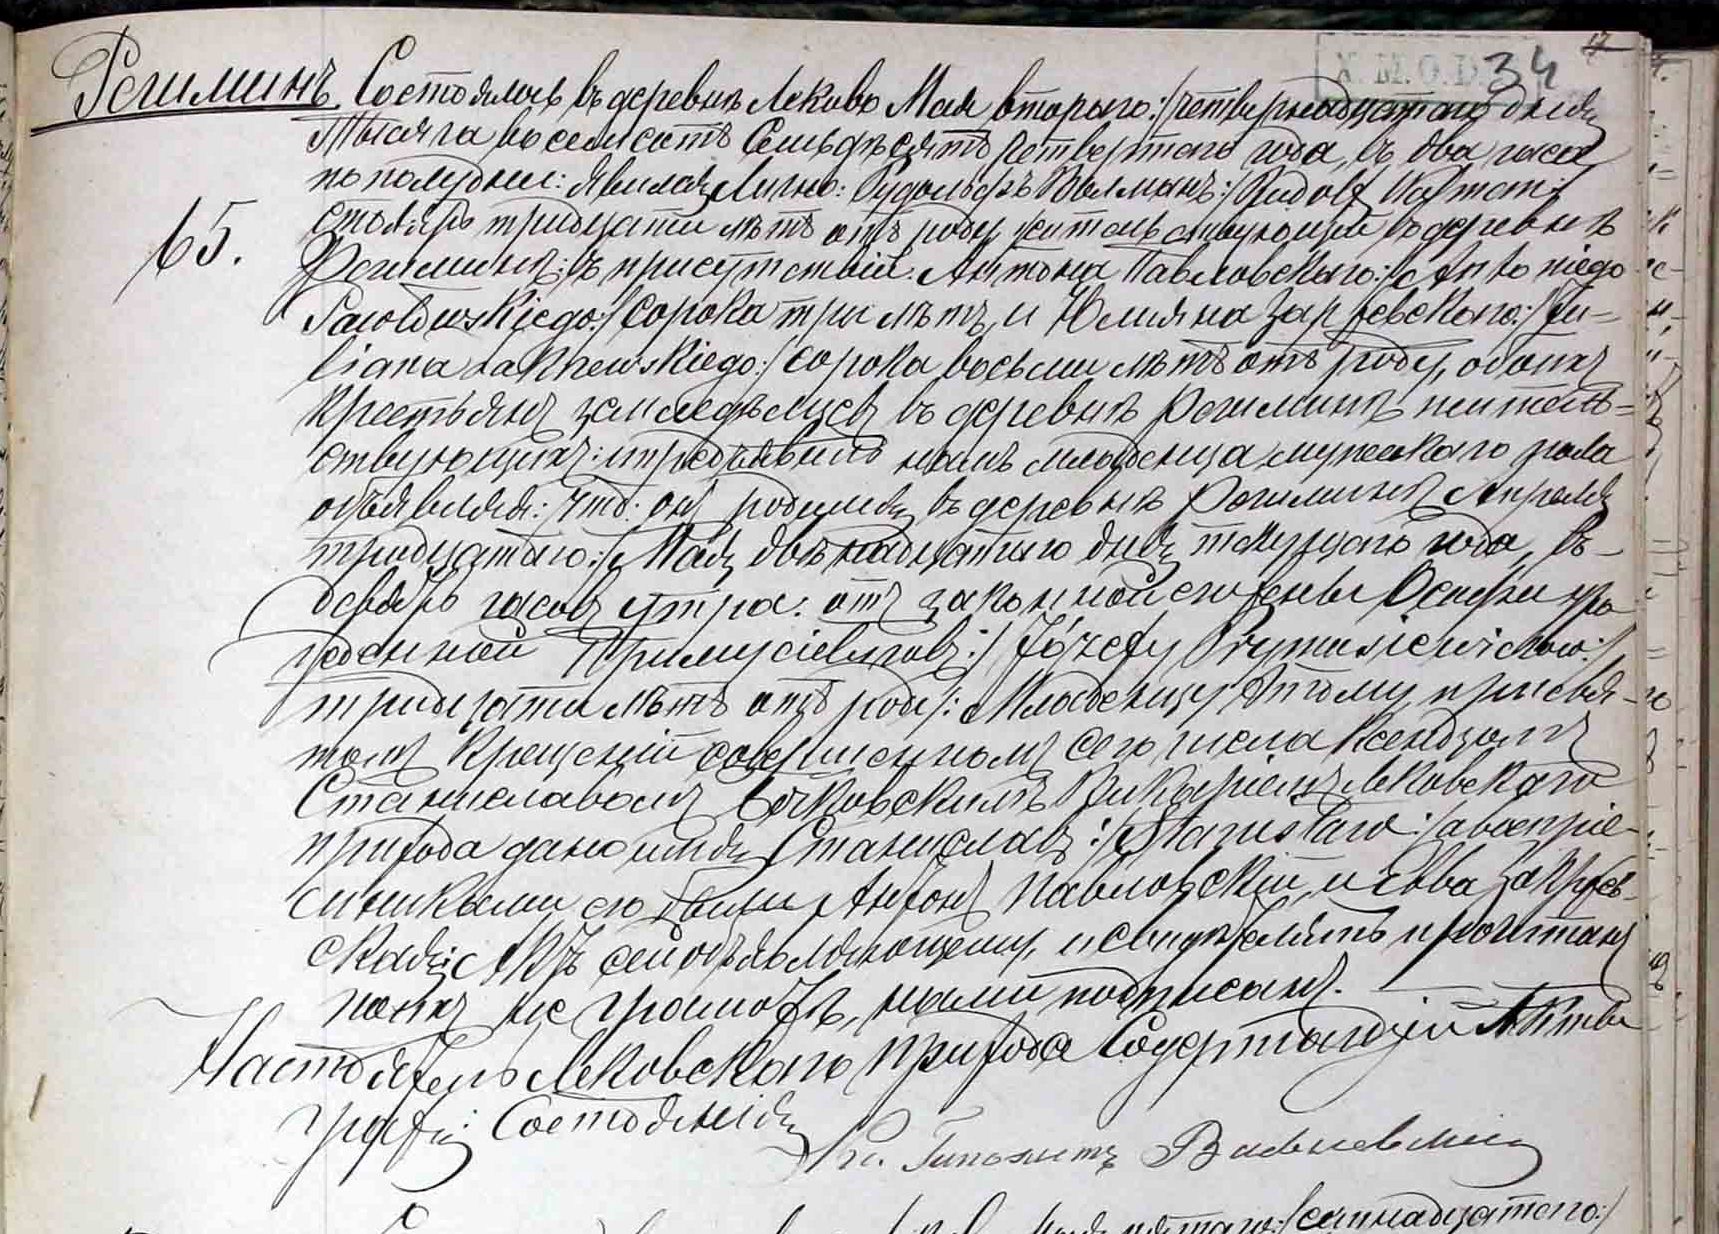 34
Региминъ. Состоялось въ деревнѣ Леково Мая втораго:/четырнадцатаго дня
Тысяча восемсотъ Семьдѣсятъ Четвертаго года, въ два часа
по полудни: явился Лично: Рудольфъ Валманъ:/Rudolf Walman:/
столяръ тридцати лѣтъ отъ роду жительствующій въ деревнѣ
65.
Региминѣ: въ присутствіи: Антона Павловскаго:/Antoniego
Pawłowskiego:/ сорока три лѣтъ, и Юлияна Закржевскаго:/Ju-
liana Zakrzewskiego:/ сорока восьми лѣтъ отъ роду, обоихъ
крестьянъ земледѣльцевъ въ деревнѣ Региминѣ житель-
ствующихъ: и предъявилъ намъ младенца мужескаго пола
объявляя: что: онъ родился въ деревнѣ Региминѣ Апреля
тридцатаго:/Мая двѣнадцатаго дня текущаго года, въ
девять часовъ утра: отъ законной его жены Осифы уро
жденной Примусіевичовъ:/ Józefy Prymusiewiczow:/
тридцати лѣтъ отъ роду: Младенцу этому при свя-
томъ Крещеніи совершенномъ сего числа Ксендзомъ
Станиславомъ Викаріемъ Лековскаго
прихода дано имя Станиславъ:/Stanisław:/ а воспріе-
мниками его были Антонъ Павловскій, и Евва Закржев-
ская: Актъ сей объявляющему, и свидѣтелямъ прочитанъ
нами подписанъ.
Настоятель Лековскаго Прихода Содержающій Акты
граж: Состоянія
Кс. Гипολитъ